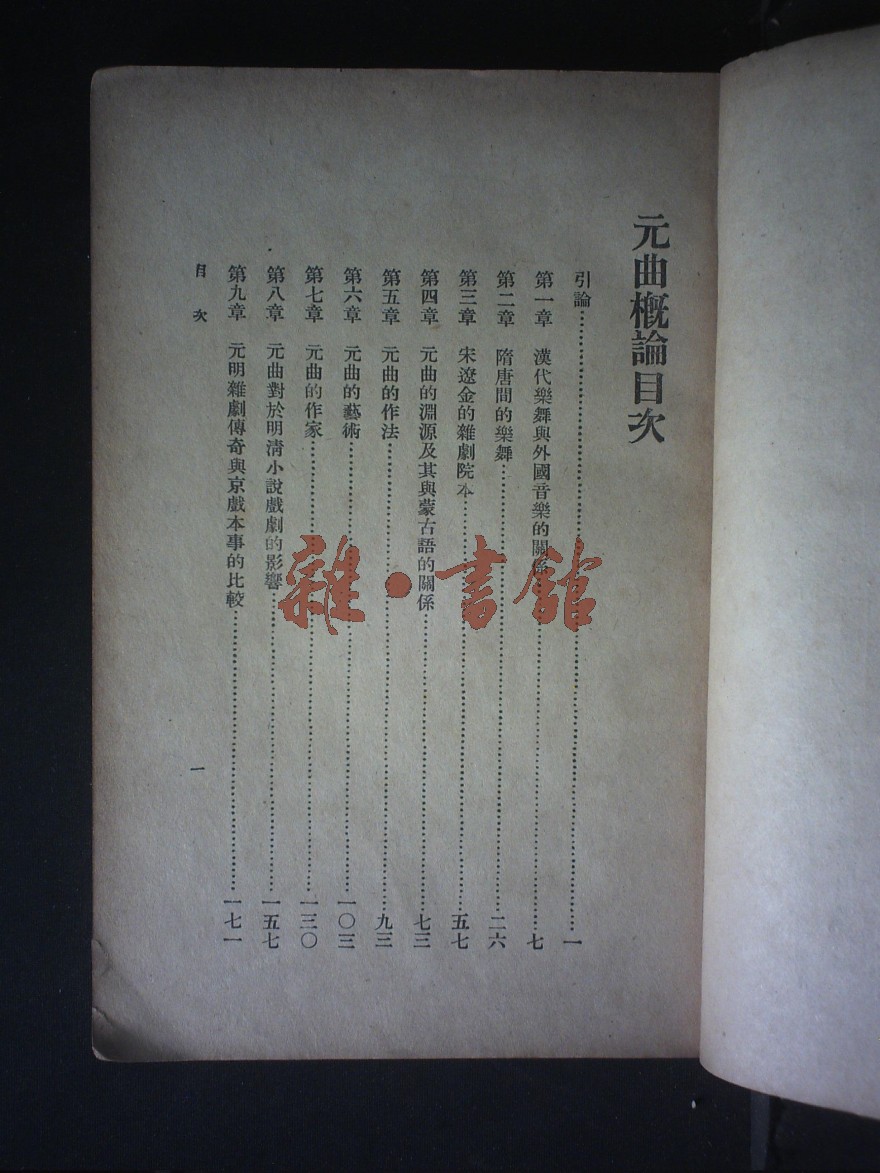 元曲概論目次
引論……一
第一章　漢代樂舞與外國音樂的關係……七
第二章　隋唐間的樂舞……二六
第三章　宋遼金的雜劇院本……五七
第四章　元曲的淵源及其與蒙古語的關係……七三
第五章　元曲的作法……九三
第六章　元曲的藝術……一〇三
第七章　元曲的作家……一三〇
第八章　元曲對於明清小說戲劇的影響……一五七
第九章　元明雜劇傳奇與京戲本事的比較……一七一
目次
一
雜·書館